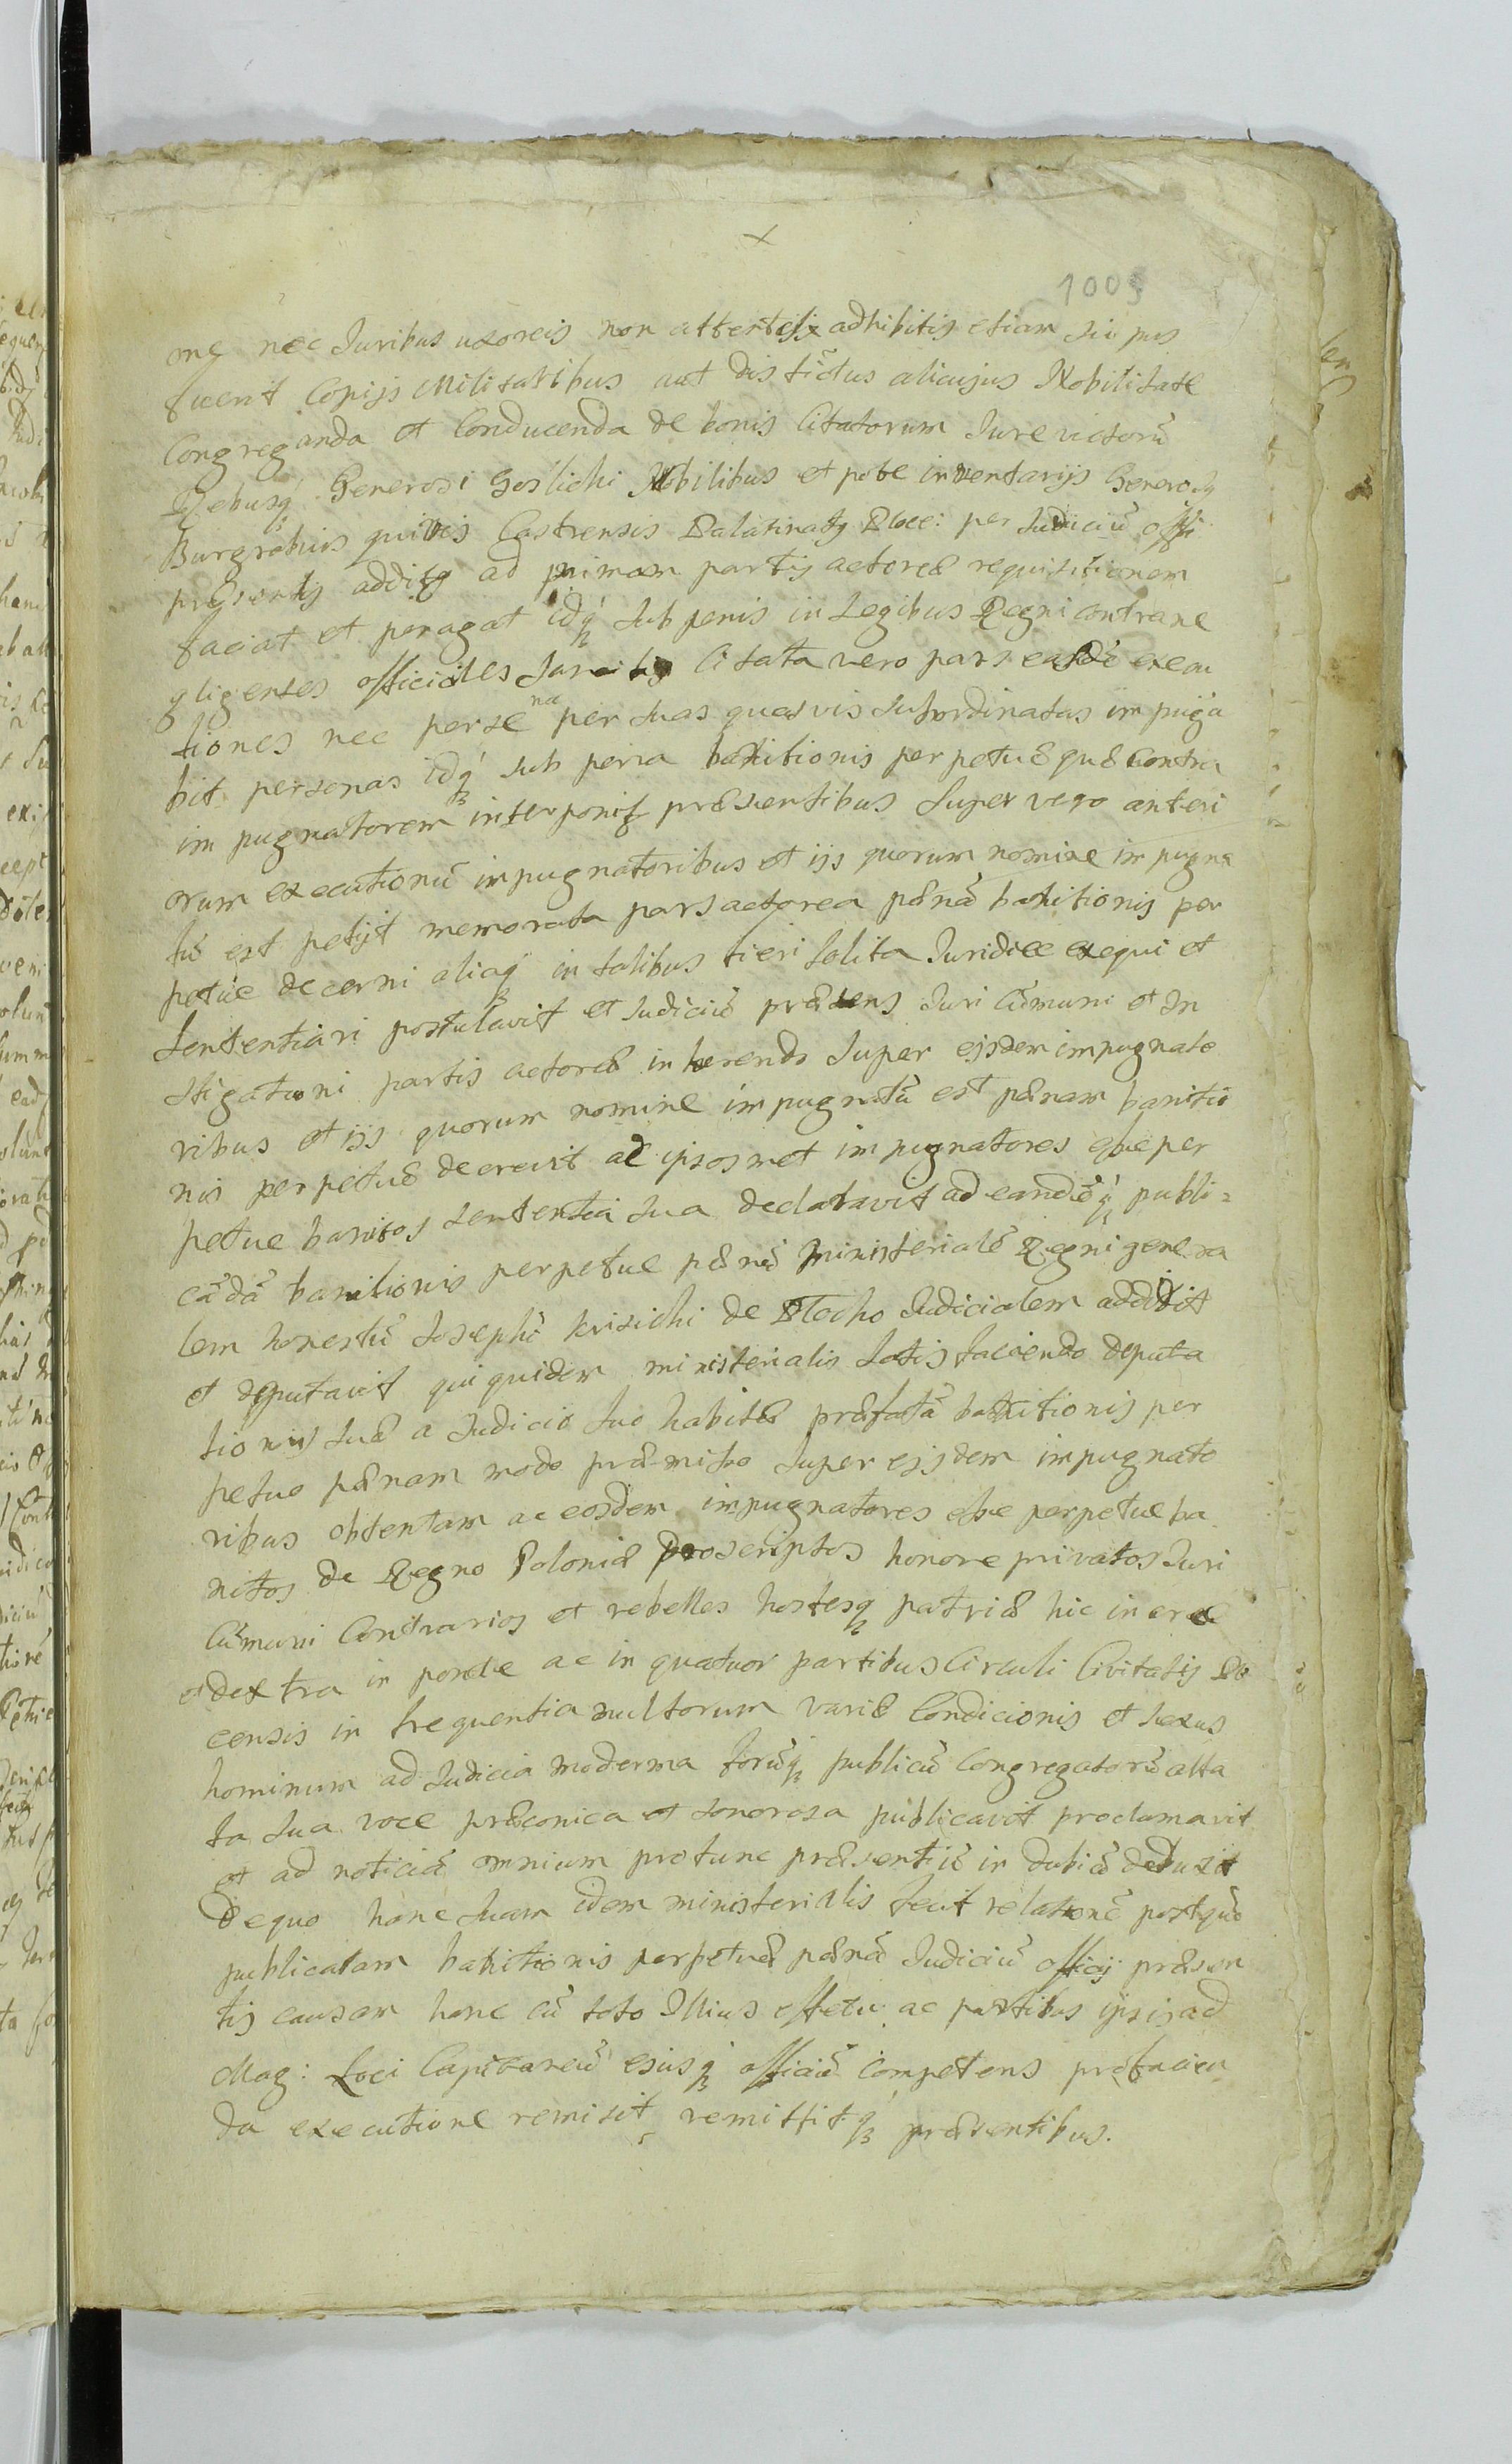 1005
me nec Juribus uxoreis non attentis adhibitis etiam si opus
fuerit Copijs Militaribus aut districtus alicujus Nobilitate
Congreganda et Conducenda de bonis Citatorum Jure victorũ
Rebusq́ Generosi Goslichi Mobilibus et pote inventarijs Generosus
Burgrabius quivis Castrensis Palatinatus Ploce: per Judiciũ offi
præsentis additus ad primam partis actoreæ requisitionem
faciat et peragat idq́ sub penis in Legibus Regni contra ne
gligentes officiales Sancitis Citata vero pars easdẽ execu
tiones nec per se nec per suas quasvis subordinatas impugna
bit personas idq́ sub pena banitionis perpetuæ quæ contra
impugnatorem interponitur præsentibus super vero anteri
orum executionũ impugnatoribus et ijs quorum nomine impugna
tũ est petijt memorata pars actorea pænã banitionis per
petuæ decerni aliaq́ in talibus fieri solita Juridice exequi et
Sententiari postulavit et Judiciũ præsens Juri Cõmuni et In
stigationi partis actoreæ inherendo super ejsdem impugnato
ribus et ijs quorum nomine impugnatũ est pænam banitio
nis perpetuæ decrevit ac ipsosmet impugnatores esse per
petue banitos sententia sua declaravit ad eandẽq́ publi=
cãdã banitionis perpetuæ pænã Ministerialẽ Regni genera
lem honestũ Josephũ Krisichi de Plocko Judicialem addidit
et deputavit qui quidem ministerialis satis faciendo deputa
tionis suæ a Judicio suo habitæ præfatã banitionis per
petuæ pænam modo præmisso super ejsdem impugnato
ribus obtentam ac eosdem impugnatores esse perpetue ba
nitos de Regno Poloniæ proscriptos honore privatos Juri
Cõmuni Contrarios et rebelles hostesq́ patriæ hic in arce
et dextra in ponte ac in quatuor partibus Circuli Civitatis Plo
censis in frequentia multorum variæ Condicionis et sexus
hominum ad Judicia moderna forũq́ publicũ Congregatorũ alta
ta sua voce præconica et sonorosa publicavit proclamavit
et ad noticiã omnium pro tunc præsentiũ indubiã deduxit
De quo hanc suam idem ministerialis fecit relationẽ post quã
publicatam banitionis perpetuæ pænã Judiciũ officij præsen
tis causam hanc cũ toto Illius effectu ac partibus ipsis ad
Mag: Loci Capitaneũ ejusq́ officiũ competens pro facien
da executione remisit remittitq́ præsentibus.